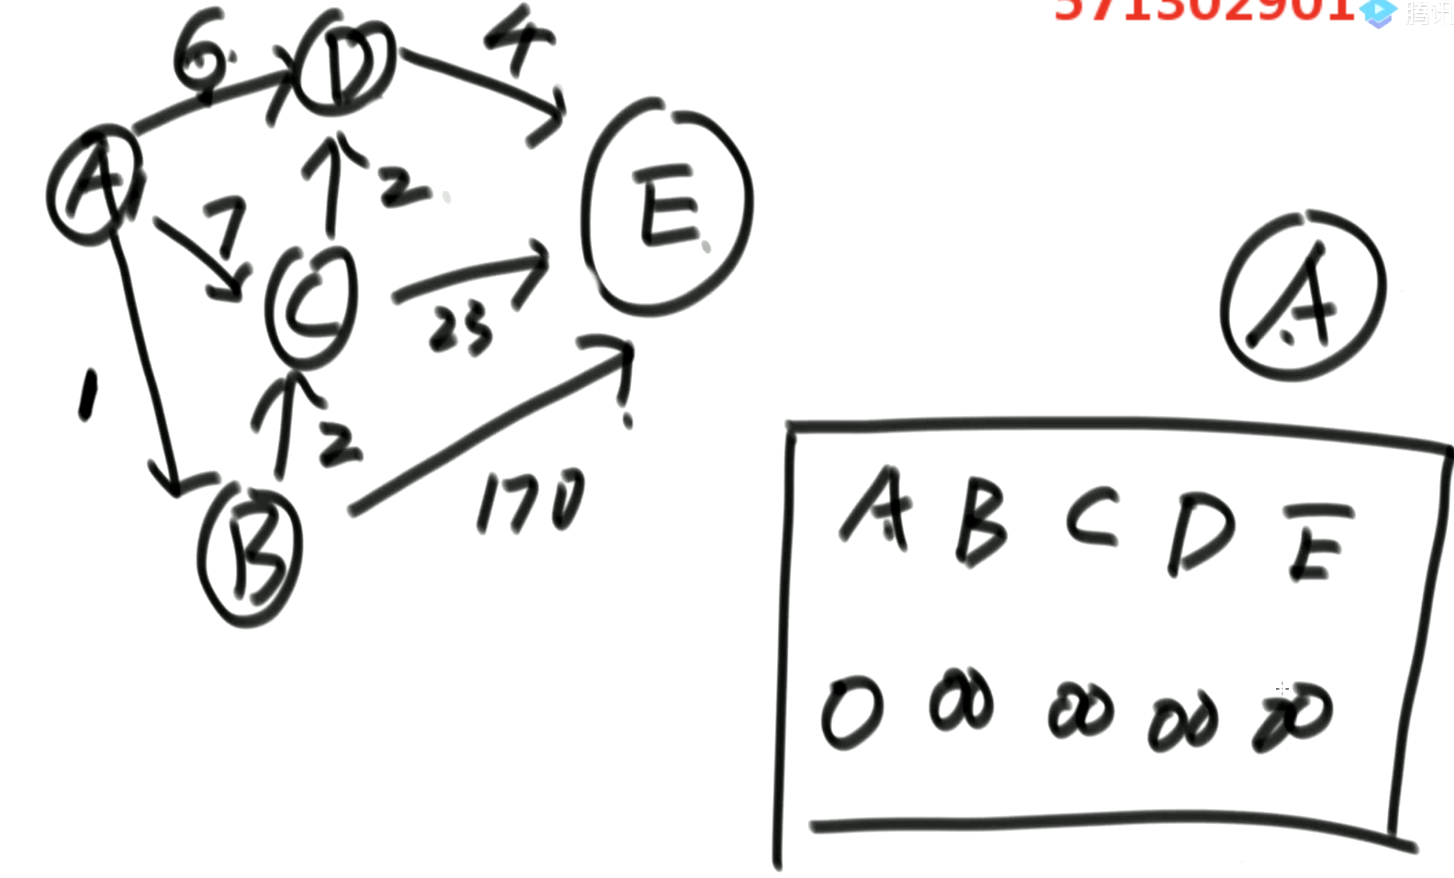 571302901
腾讯
6
D
4
A
7
2
E
C
23
1
2
A
170
B
A B C D E
0 ∞ ∞ ∞ ∞